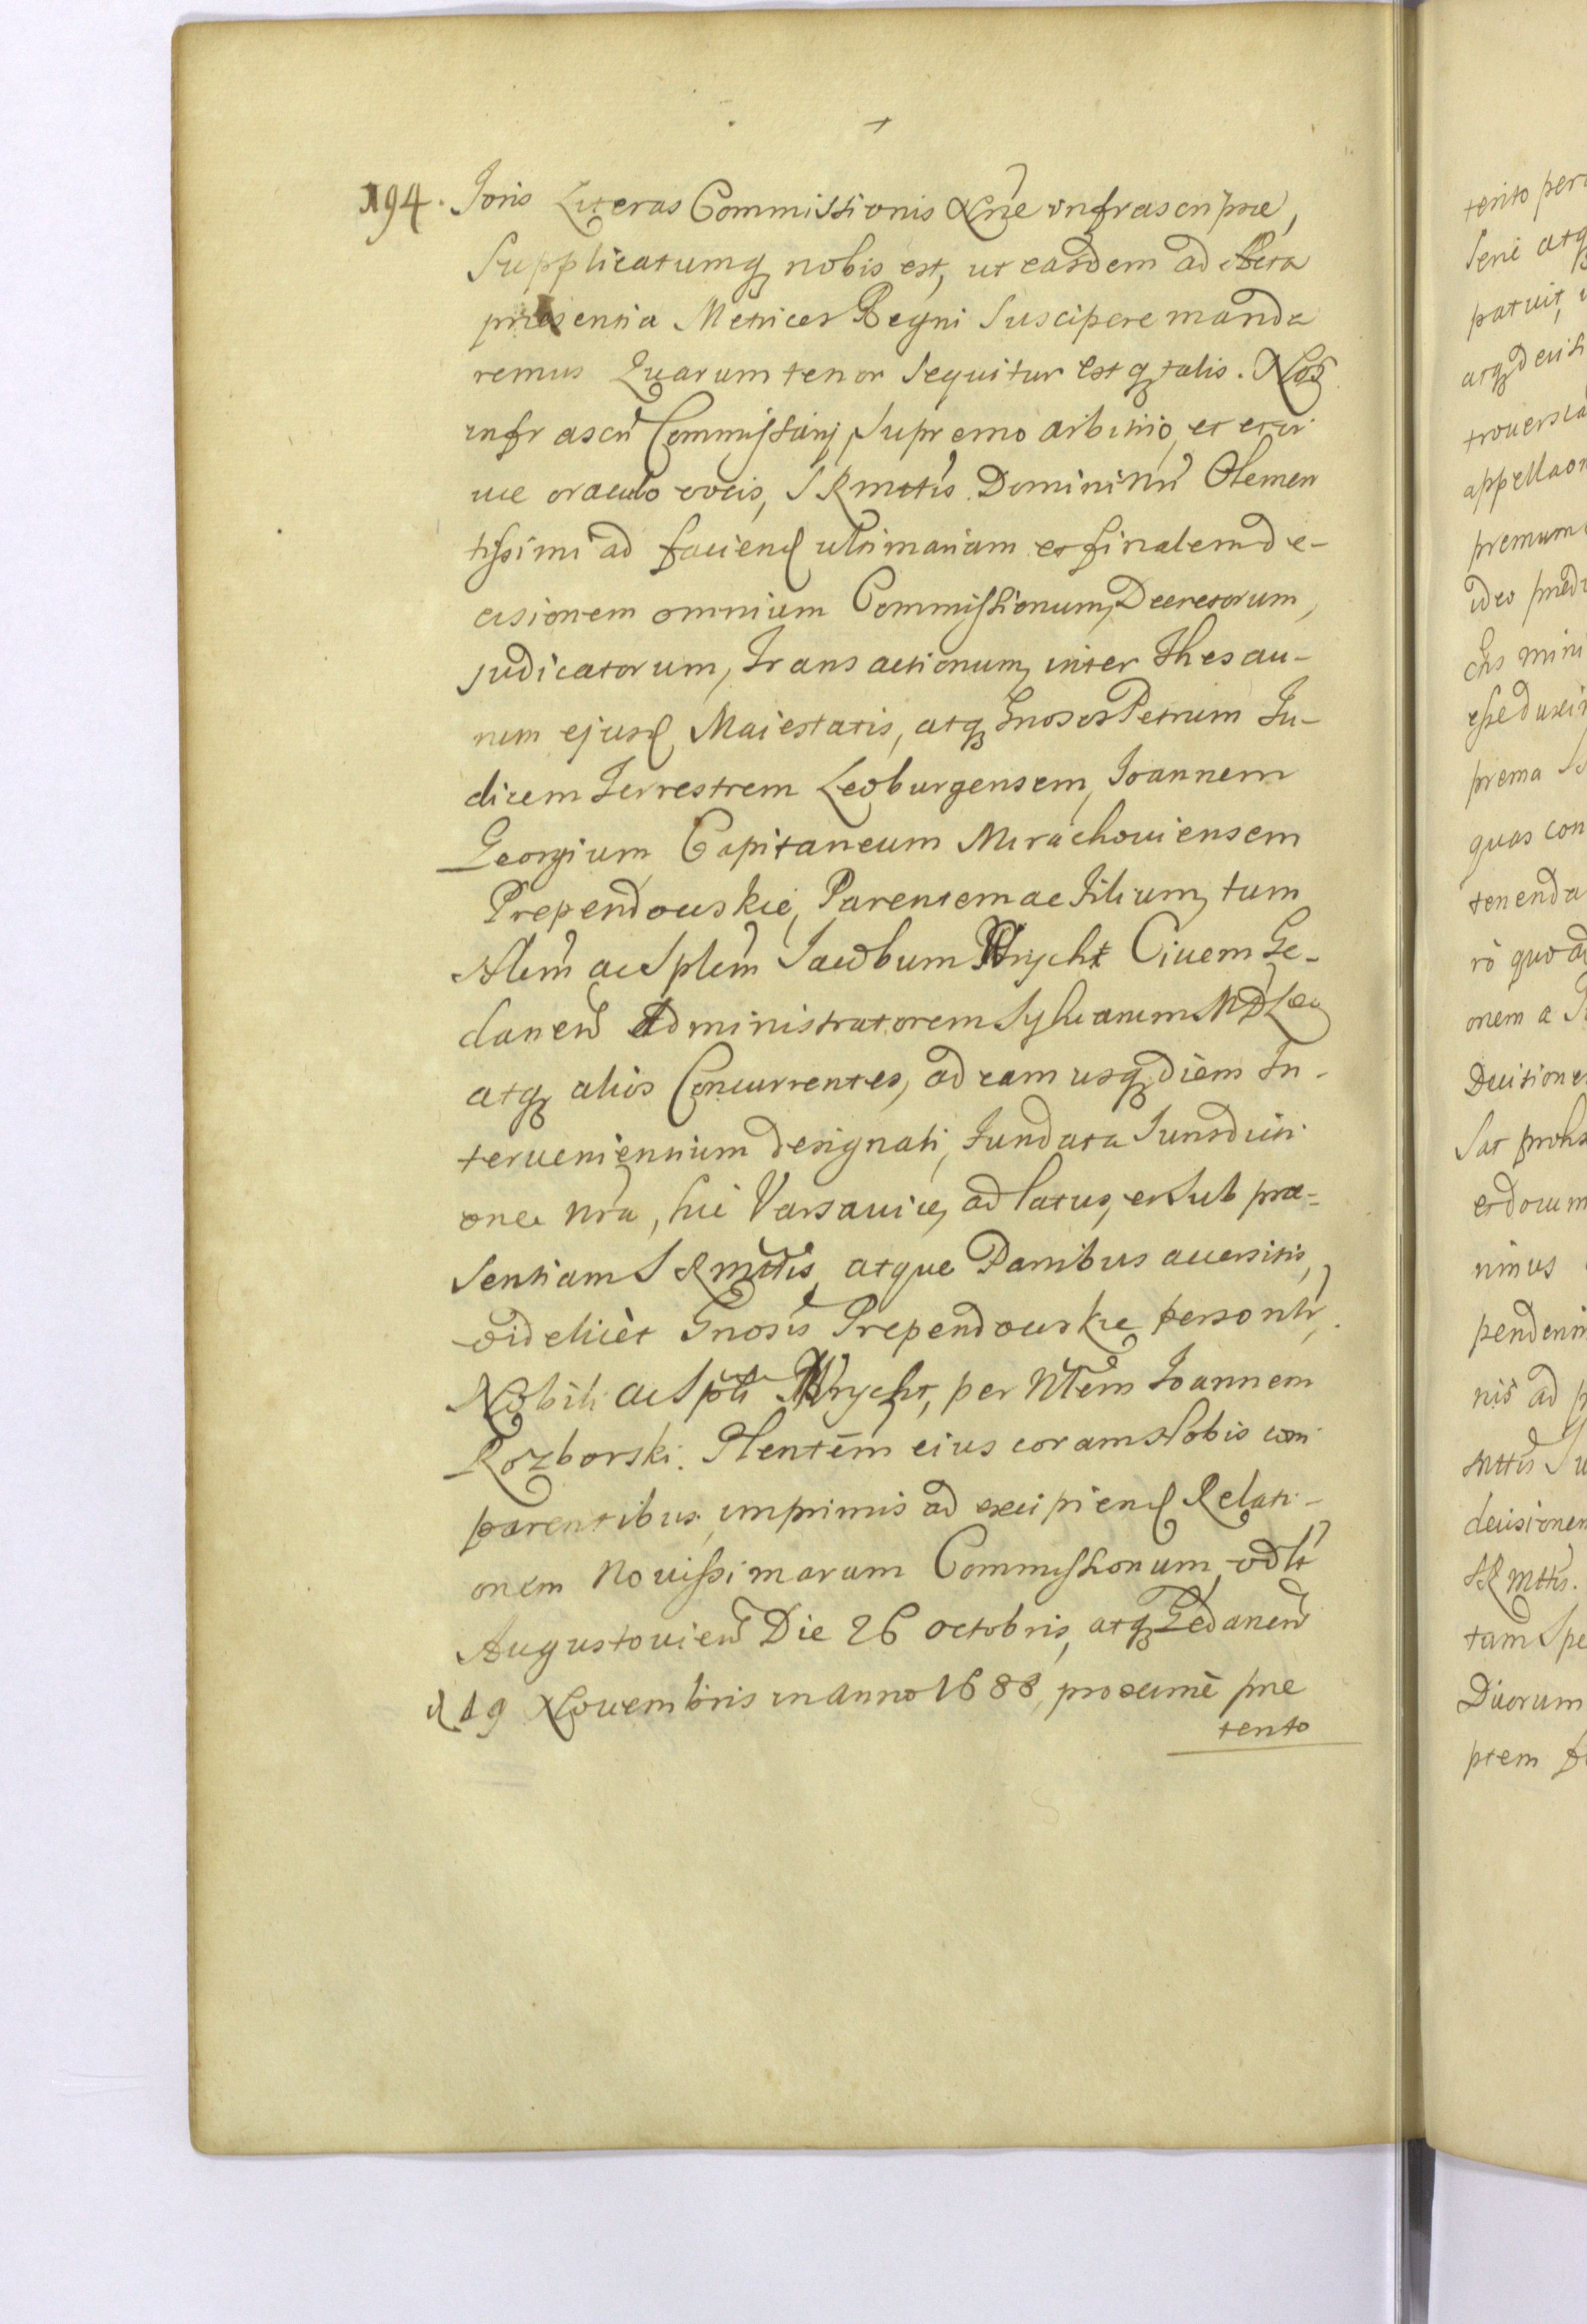 194. Ioris Literas Commissionis Rnē infrascriptae,
Supplicatumq nobis est, ut easdem ad Acta
praesentia Metrices Regni Suscipere manda
remus Quarum tenor sequitur estq talis. Nos
infrascri Commissarij Supremo arbitrio, et
uae oraculo vocis, S R mttis Domini nri Clemen
tissimi ad faciend ultimariam et finalem de-
cisionem omnium Commissionum, Decretorum,
judicatorum, Transactionum, inter Thesau-
rum ejusd Maiestatis, atq Gnosos Petrum Ju-
dicem Terrestrem Leoburgensem, Joannem
Georgium Capitaneum Mirachouiensem
Prependouskie, Parentem ac Filium, tum
Nlem ac Splem Jacobum Wrycht Ciuem Ge-
danen Administratorem Syluarum M D L
atq alios Concurrentes, ad eam usq diem In-
terueniennium designati, fundata Iurisdicti
one nra, hic Varsauiae, ad latus, et sub prae-
sentiam S R mttis, atque Partibus auersitis,
videlicet Gnosis Prependouskie personlr,
Nobili ac Spli Wrycht, per Nlem Joannem
Rozborski. Plentem eius coram Nobis com
parentibus, imprimis ad excipiend Relati-
onem Nouissimarum Commissionum, vdlt
Augustouien Die 26 octobris, atq Gedanen
d 19 Nouembris in anno 1688, proxime prae
tento
tento
Seriè atq
patuit,
atq
trouersia
premum
ideo
mini
prema
quas con
tenenda
onem a
Decisione
et dorum
minus
nis ad
decisionem
S R mttis.
tam Spe
Diuorum
ptem